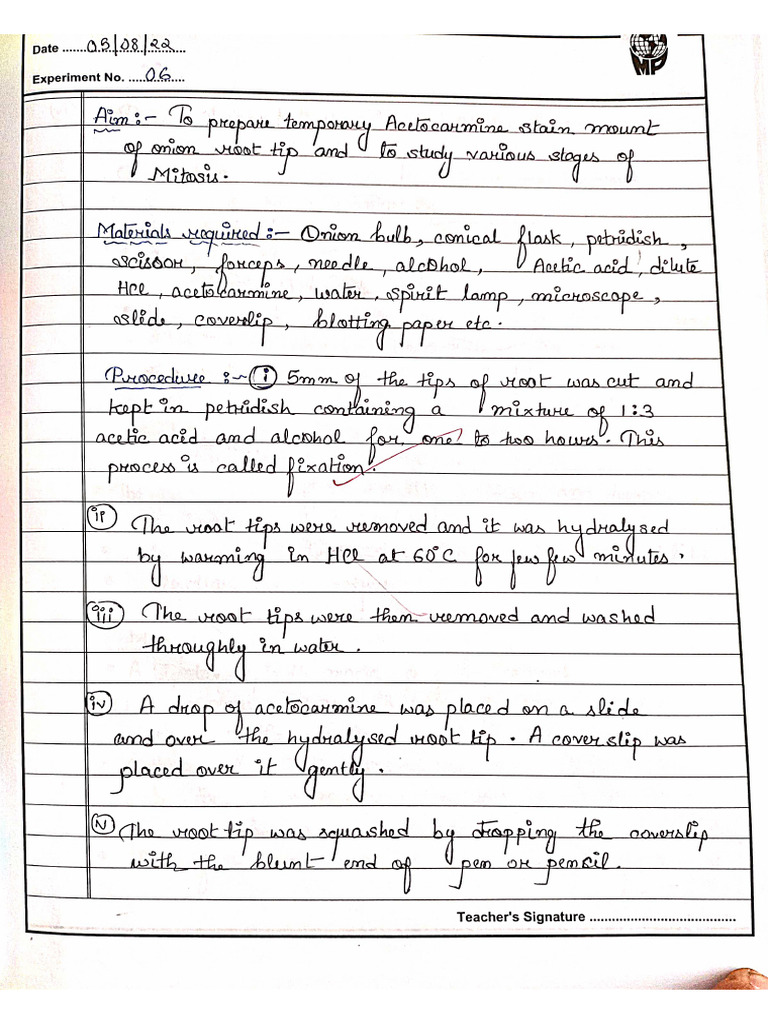 Date ....... 05/08/22 ...........
Experiment No. ..... 06 ....
MP
Aim :- To prepare temporary Acetocarmine stain mount
of onion root tip and to study various stages of
Mitosis.
Materials required :- Onion bulb, conical flask, petridish,
scissoor, forceps, needle, alcohol, Acetic acid, dilute
HCl, acetocarmine, water, spirit lamp, microscope,
slide, coverslip, blotting paper etc.
Procedure :- (i) 5mm of the tips of root was cut and
kept in petridish containing a mixture of 1:3
acetic acid and alcohol for one to two hours. This
process is called fixation.
ii) The root tips were removed and it was hydralysed
by warming in HCl at 60°C for few few minutes.
iii) The root tips were then removed and washed
throughly in water.
iv) A drop of acetocarmine was placed on a slide
and over the hydralysed root tip. A coverslip was
placed over it gently.
v) The root tip was squashed by dropping the coverslip
with the blunt end of pen or pencil.
Teacher's Signature .......................................